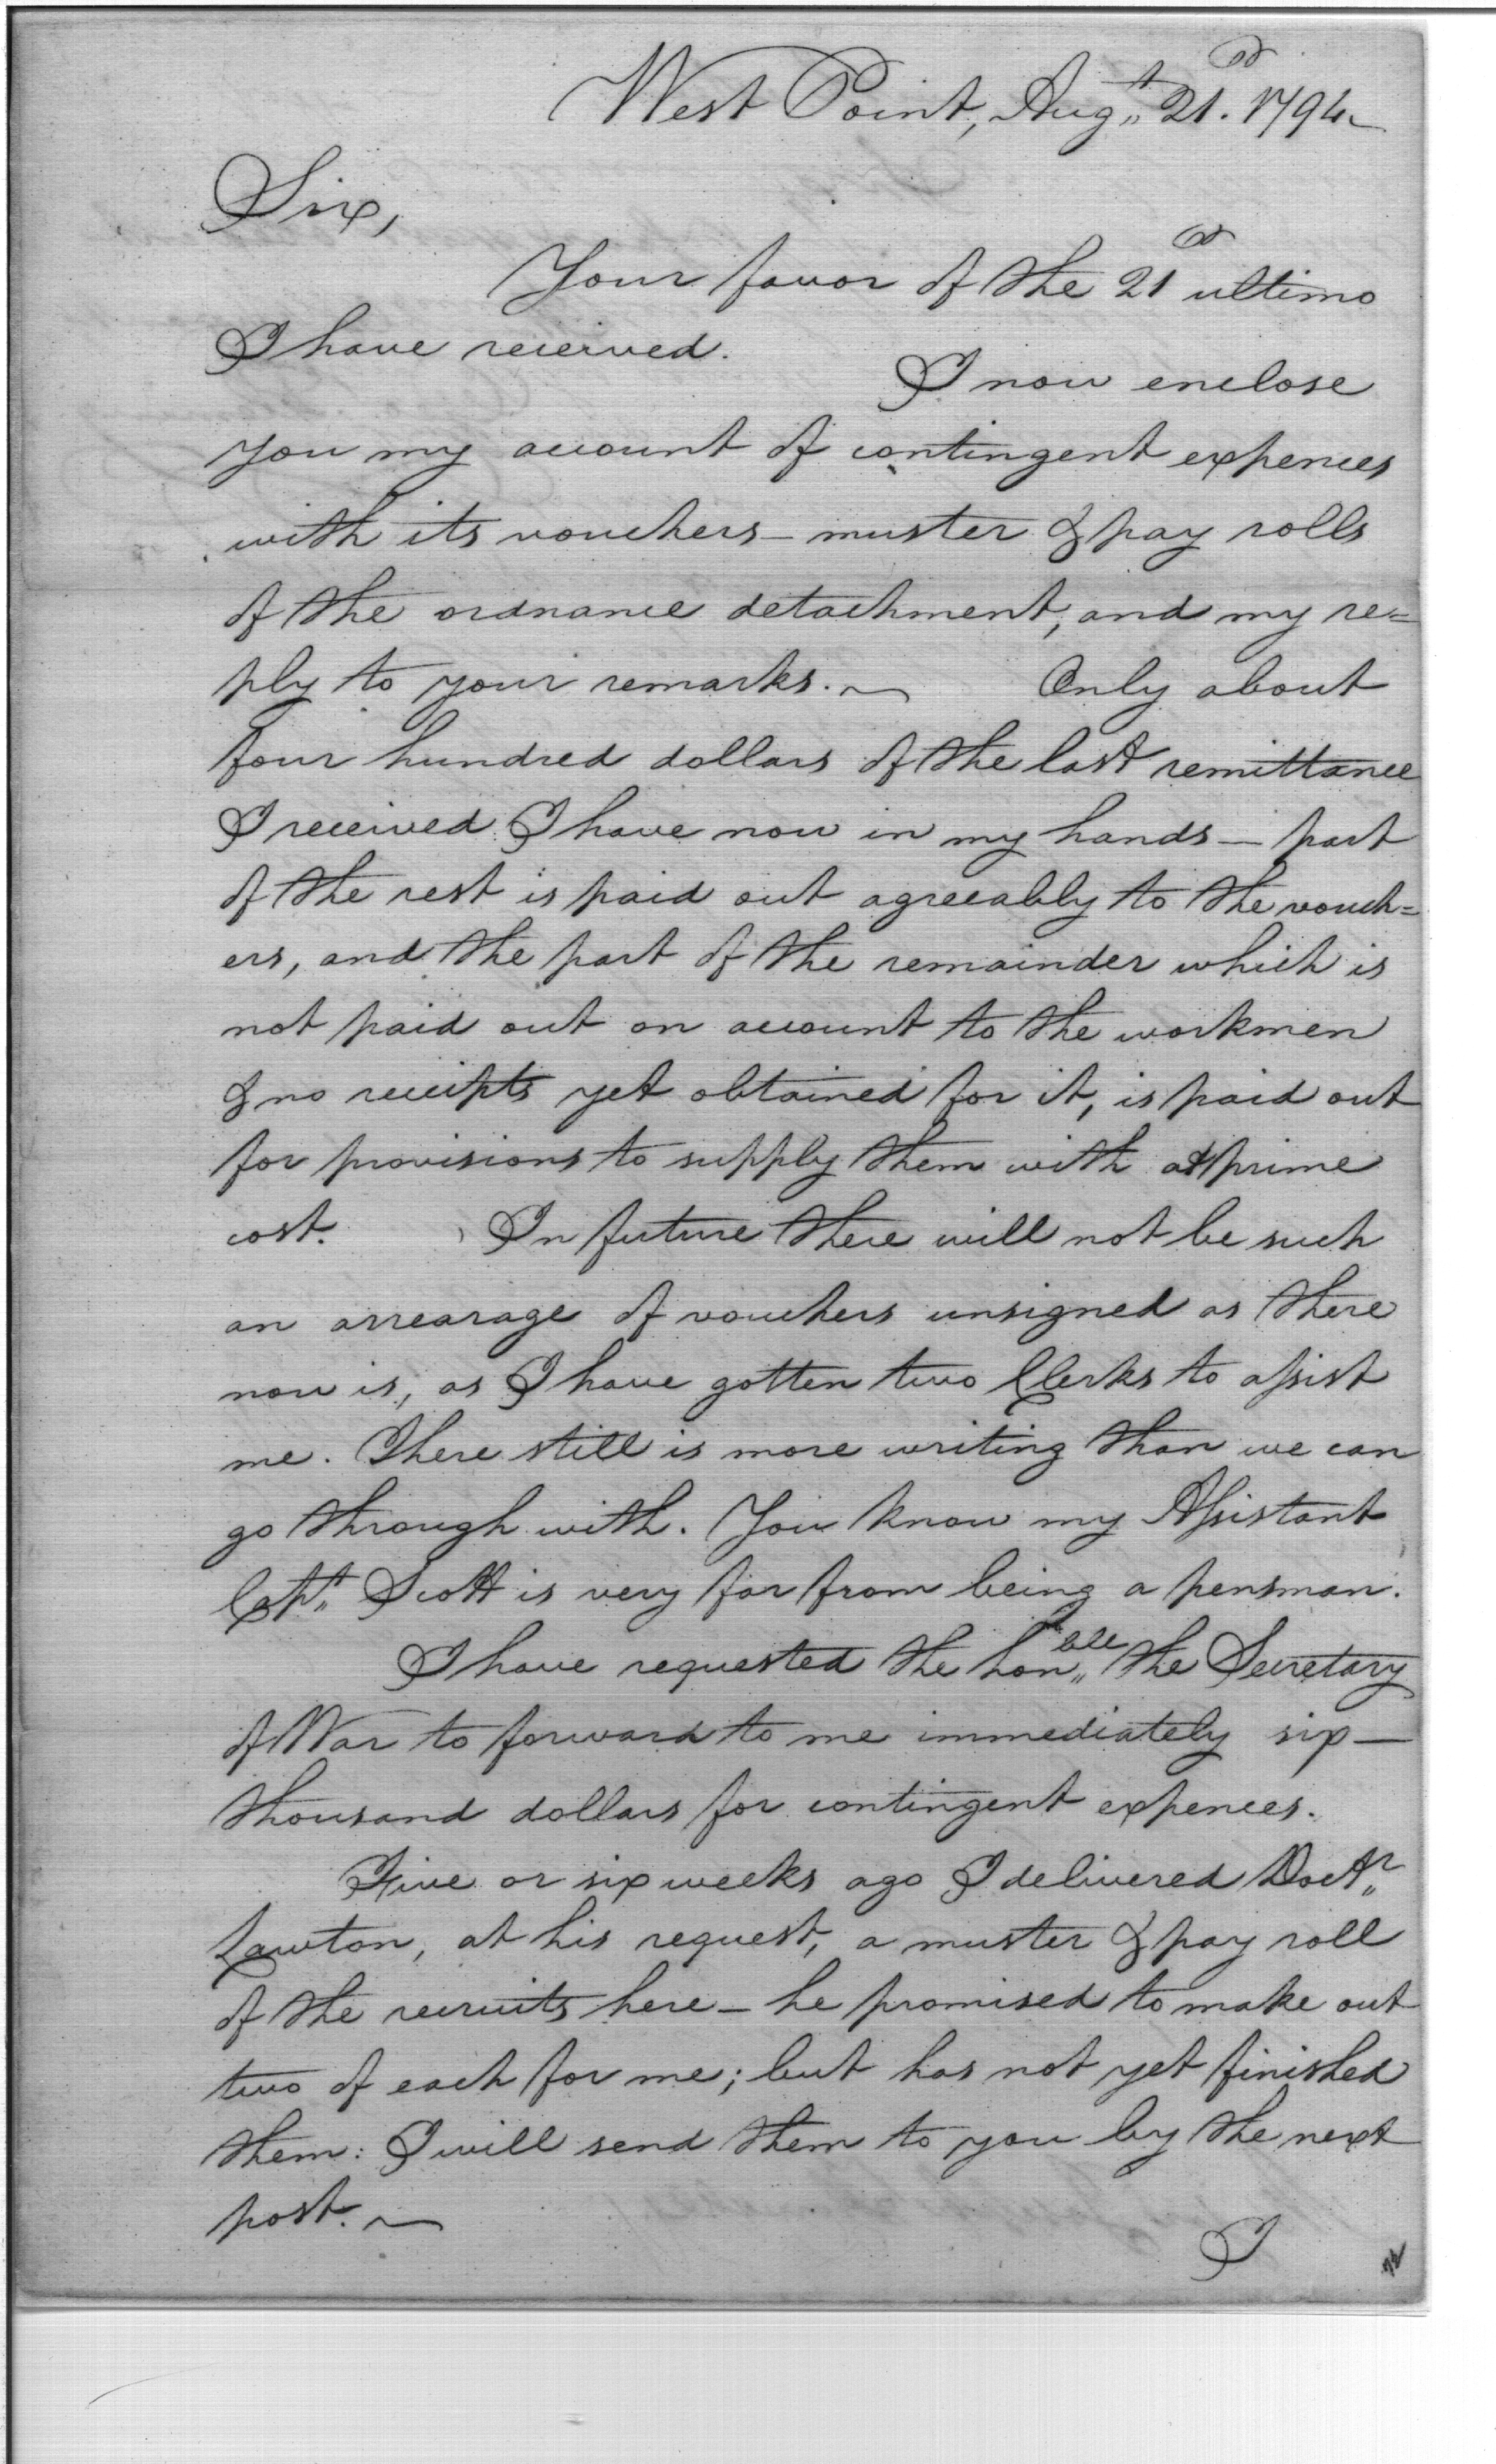 West Point, Aug.t 21.d 1794.
Sir,
Your favor of the 21d ultimo
I have received.
I now enclose
you my account of contingent expences
with its vouchers - muster & pay rolls
of the ordnance detachment, and my re=
ply to your remarks. ~ Only about
four hundred dollars of the last remittance
I received I have now in my hands - part
of the rest is paid out agreeably to the vouch=
ers, and the part of the remainder which is
not paid out on account to the workmen
& no receipts yet obtained for it, is paid out
for provisions to supply them with at prime
cost. In future there will not be such
an arrearage of vouchers unsigned as there
now is, as I have gotten two Clerks to assist
me. There still is more writing than we can
go through with. You know my Assistant
Capt. Scott is very far from being a pensman.
I have requested the honble the Secretary
of War to forward to me immediately six -
thousand dollars for contingent expences.
Five or six weeks ago I delivered Doctr
Lawton, at his request, a muster & pay roll
of the recruits here - he promised to make out
two of each for me; but has not yet finished
them: I will send them to you by the next
post. ~
I